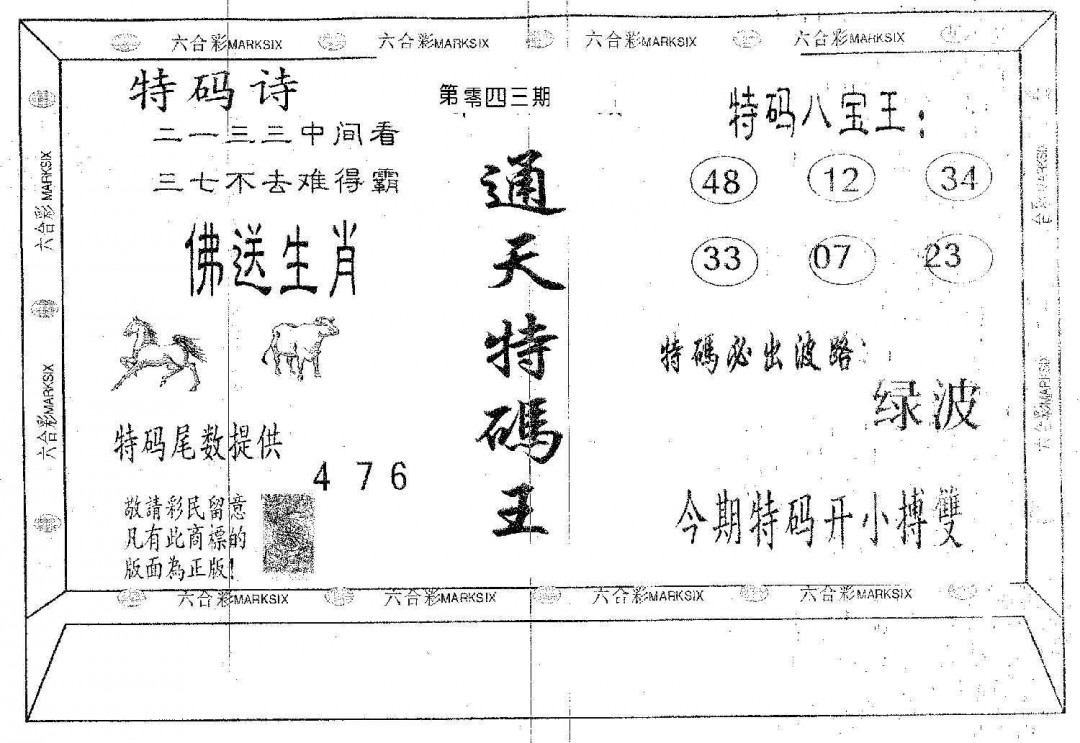 六合彩MARKSIX 六合彩MARKSIX 六合彩MARKSIX 六合彩MARKSIX
特码诗
二一三三中间看
三七不去难得霸
佛送生肖
特码尾数提供
4 7 6
敬請彩民留意
凡有此商標的
版面為正版!
第零四三期
通天特碼王
特码八宝王:
48 12 34
33 07 23
特碼必出波路:
绿波
今期特码开小搏雙
六合彩MARKSIX
六合彩MARKSIX
合彩MARKSIX
六合彩MARKSIX
六合彩MARKSIX 六合彩MARKSIX 六合彩MARKSIX 六合彩MARKSIX